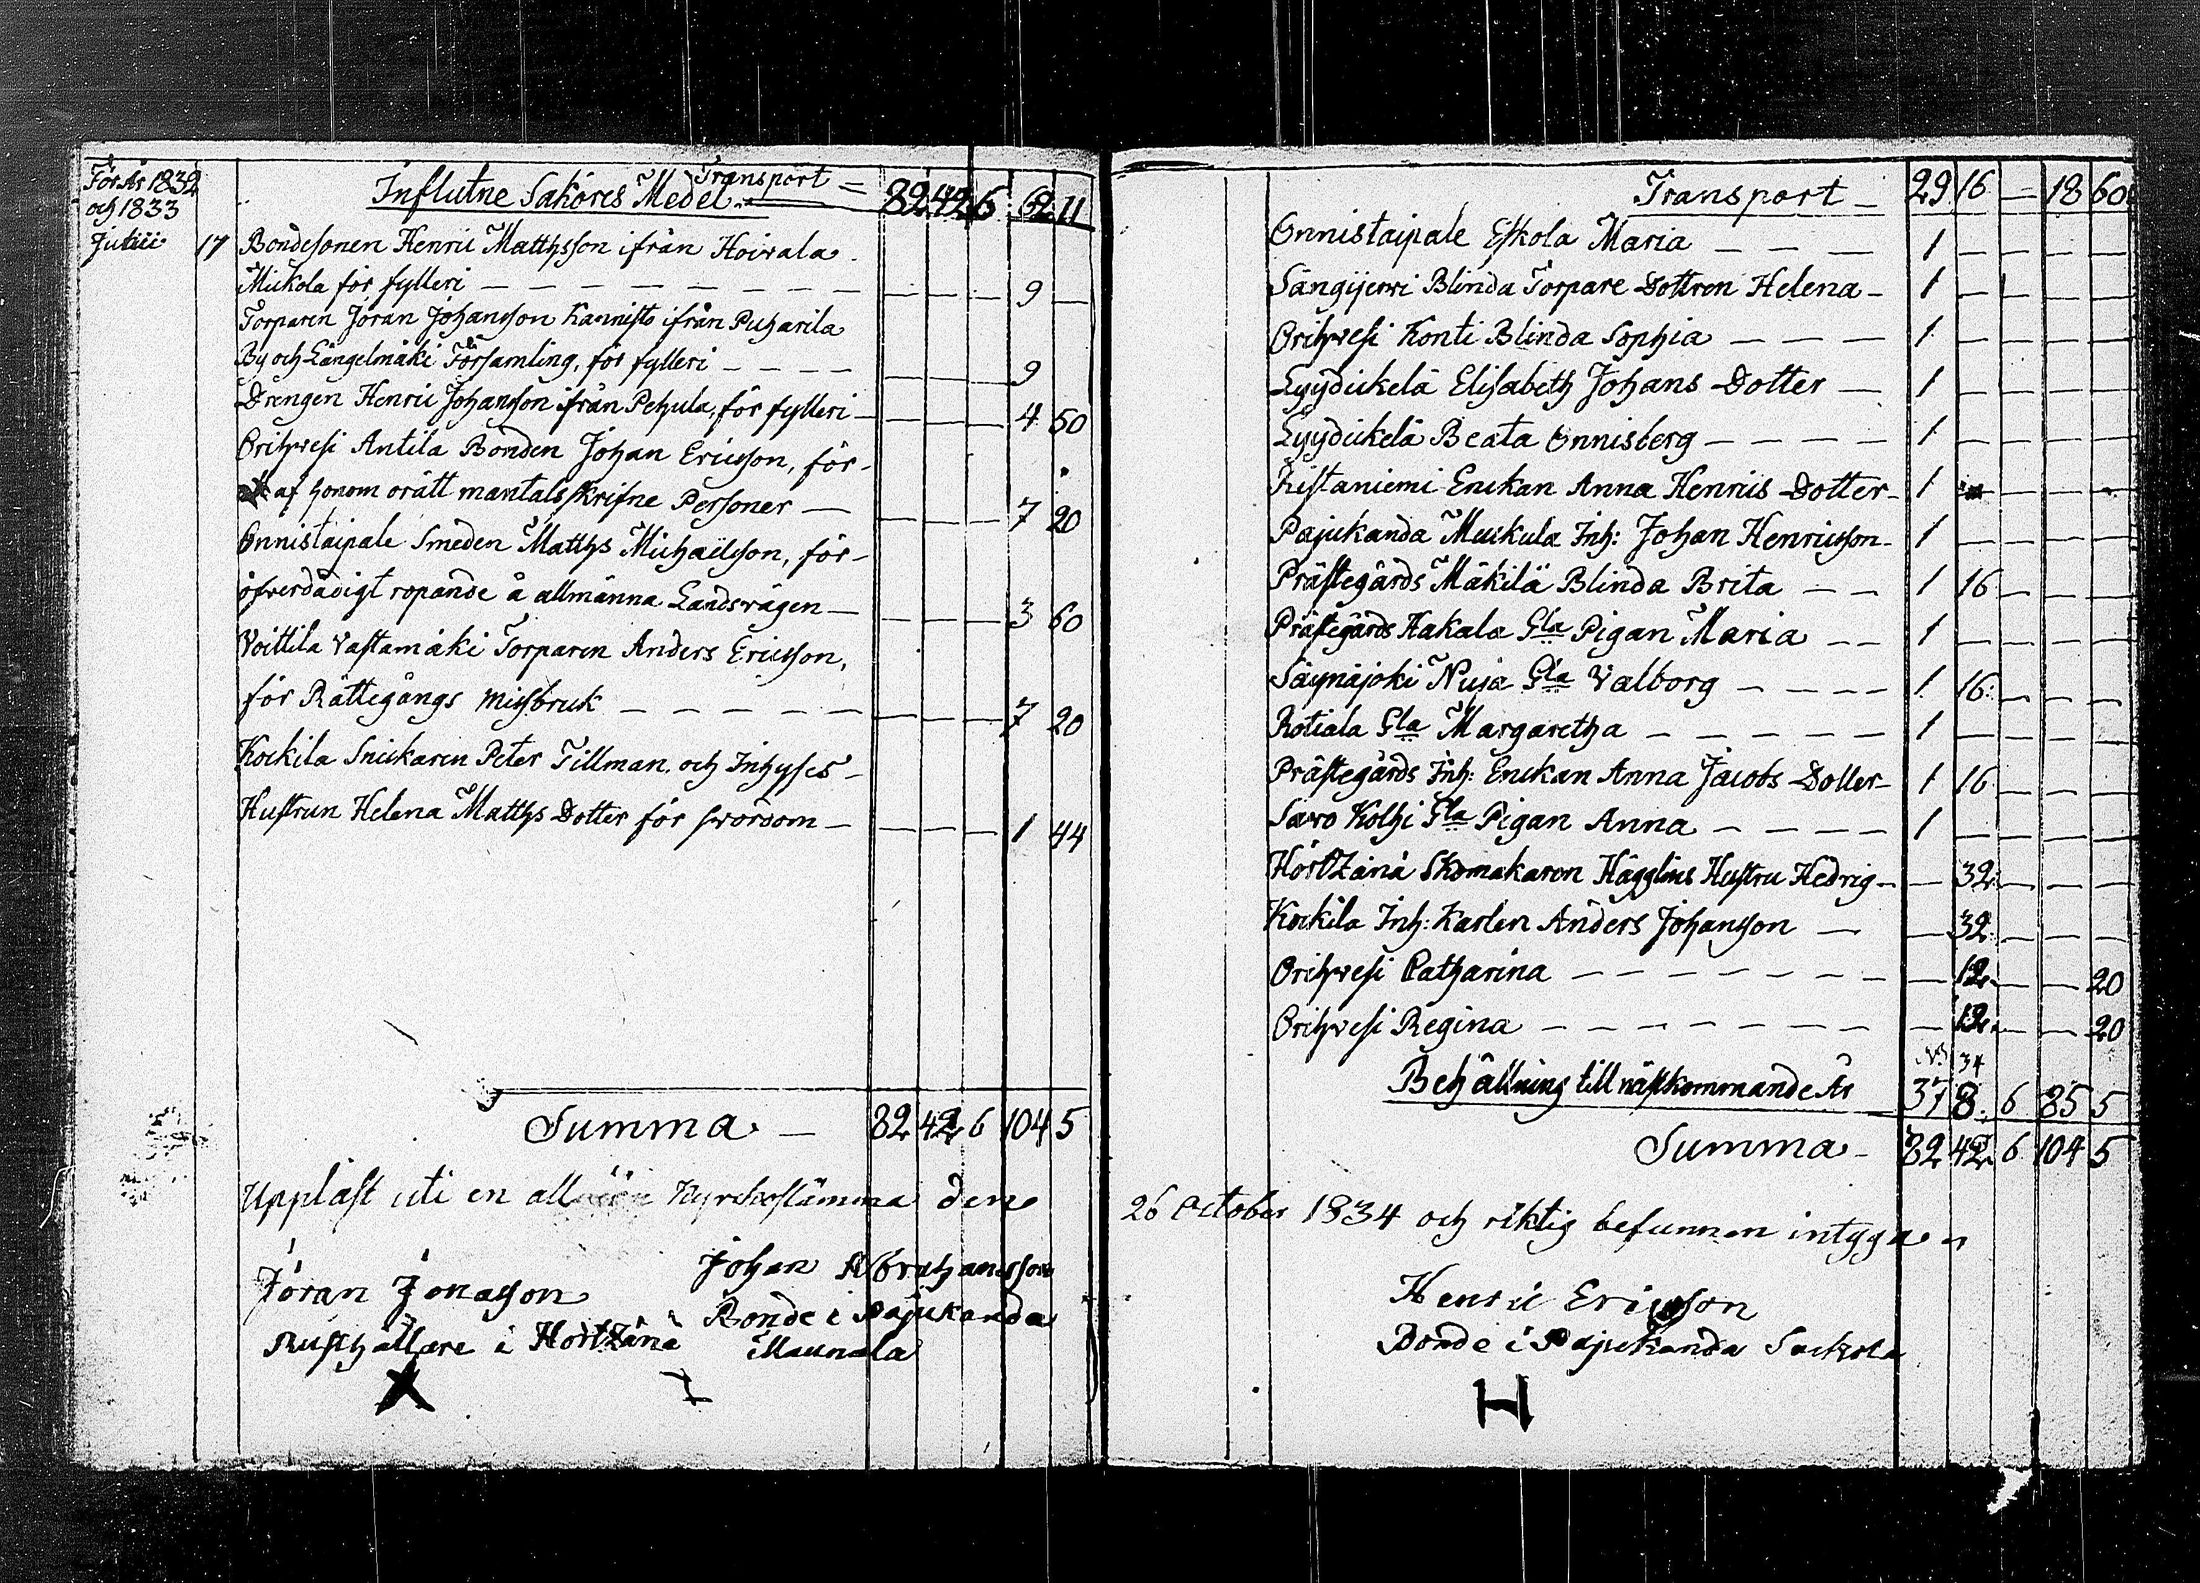 För År 1832
och 1833
Transport — 82 42 6 62 11
Influtne Saköres Medel
Junii 17 Bondesonen Henric Matthsson ifrån Hoivala
Mickola för fylleri — — — — — — — — — — — 9 —
Torparen Jöran Johansson Kannisto ifrån Puharila
By och Längelmäki Församling, för fylleri — — — — — — — 9
Drengen Henric Johansson ifrån Pehula, för fylleri — — — — 4 50
Orihvesi Antila Bonden Johan Ericsson, för
af honom orätt mantalsskrifne Personer — — — — 7 20
Onnistaipale Smeden Matths Michaelsson, för
öfverdådigt ropande å allmänna Landsvägen — — — — 3 60
Voittila Vastamäki Torparen Anders Ericsson,
för Rättegångs missbruk — — — — — — — — 7 20
Kockila Snickaren Peter Tillman, och Inhyses
Hustrun Helena Matths Dotter för svordom — — — — 1 44
Summa — 82 42 6 104 5
Uppläst uti en allmän Kyrckostämma den
Jöran Jonasson
Rusthållare i Hörtzänä
X
Johan Abrahamsson
Bonde i Pajukanda
Maunala
Transport — 29 16 — 18 60
Onnistaipale Eskola Maria — — — 1 — — — —
Sängijervi Blinda Torpare Dottren Helena — 1 — — — —
Orihvesi Konti Blinda Sophia — — — 1 — — — —
Lyydickelä Elisabeth Johans Dotter — 1 — — — —
Lyydickelä Beata Onnisberg — — — — 1 — — — —
Ristaniemi Enckan Anna Henrics Dotter — 1 — — — —
Pajukanda Muckula Inh: Johan Henricsson — 1 — — — —
Prästegårds Mäkilä Blinda Brita — — 1 16 — — —
Prästegårds Hakala Gla Pigan Maria — — 1 — — — —
Säynäjoki Nuja Gla Valborg — — — — 1 16 — — —
Rotiala Gla Margaretha — — — — — 1 — — — —
Prästegårds Inh: Enckan Anna Jacobs Dotter — 1 16 — — —
Savo Kolhi Gla Pigan Anna — — — — 1 — — — —
Hörtzänä Skomakaren Hägglins Hustru Hedvig — — 32 — — —
Kockila Inh: Karlen Anders Johansson — — 32 — — —
Orihvesi Catharina — — — — — — — — 12 — — 20
Orihvesi Regina — — — — — — — — 12 — — 20
34
Behållning till nästkommande År 37 8 6 85 5
Summa — 82 42 6 104 5
26 October 1834 och riktig befunnen intyga
Henric Ericsson
Bonde i Pajukanda
H